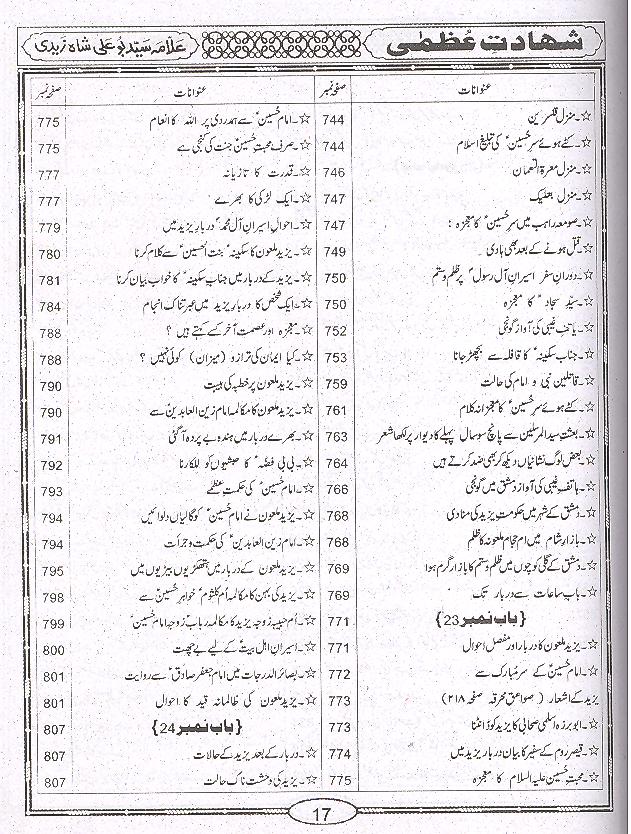 شہادتِ عُظمٰی
علامہ سیّد بو علی شاہ زیدی
عنوانات
صفحہ نمبر
☆۔منزل قنسرین 744
☆۔کٹے ہوئے سرِ حسینؑ کی تبلیغ اسلام 744
☆۔منزل معرۃ النعمان 746
☆۔منزل بعلبک 747
☆۔صومعہ راہب میں سرِ حسینؑ کا معجزہ : 747
☆۔قتل ہونے کے بعد بھی ہادی۔ 749
☆۔دورانِ سفر اسیرانِ آل رسولؐ پر ظلم و ستم 750
☆۔سیّد سجادؑ کا معجزہ 750
☆۔ہاتفِ غیبی کی آواز گونجی 752
☆۔جناب سکینہؑ کا قافلہ سے بچھڑ جانا 753
☆۔قاتلین نبی و امام کی حالت 759
☆۔کٹے ہوئے سرِ حسینؑ کا معجزانہ کلام 761
☆۔بعثت سید المرسلین سے پانچ سو سال پہلے کا دیوار پر لکھا شعر 763
☆۔بعض لوگ نشانیاں دیکھ کر بھی ضد کرتے ہیں 764
☆۔ہاتف غیبی کی آواز دمشق میں گونجی 766
☆۔دمشق کے شہر میں حکومتِ یزید کی منادی 768
☆۔بازارِ شام میں ام حجام ملعونہ کا ظلم 768
☆۔دمشق کے گلی کوچوں میں ظلم و ستم کا بازار گرم ہوا 769
☆۔بابِ ساعات سے دربار تک 769
{باب نمبر 23} 771
☆۔یزید ملعون کا دربار اور مفصل احوال 771
☆۔امام حسینؑ کے سرِ مبارک سے 772
یزید کے اشعار ( صواعق محرقہ صفحہ ۲۱۸) 773
☆۔ابو برزہ اسلمی صحابی کا یزید کو ڈانٹنا 773
☆۔قیصر روم کے سفیر کا بیان دربار یزید میں 774
☆۔محبتِ حسین علیہ السلام کا معجزہ 775
عنوانات
صفحہ نمبر
☆۔امام حسینؑ سے ہمدردی پر اللہ کا انعام 775
☆۔صرف محبتِ حُسینؑ جنت کی کنجی ہے 775
☆۔قدرت کا تازیانہ 777
☆۔ایک لڑکی کا بھرے 777
☆۔احوال اسیران آل محمدؐ دربار یزید میں 779
☆۔یزید ملعون کا سکینہؑ بنت الحسینؑ سے کلام کرنا 780
☆۔یزید کے دربار میں جناب سکینہؑ کا خواب بیان کرنا 781
☆۔ایک شخص کا دربارِ یزید میں عبرتناک انجام 784
☆۔معجزہ اور عصمت آخر کسے کہتے ہیں ؟ 788
☆۔کیا ایمان کی ترازو (میزان) کوئی نہیں ؟ 788
☆۔یزید ملعون پر خطبہ کی ہیبت 790
☆۔یزید ملعون کا مکالمہ امام زین العابدینؑ سے 790
☆۔بھرے دربار میں ہندہ بے پردہ آ گئی 791
☆۔بی بی فضہؑ کا حبشیوں کو للکارنا 792
☆۔امام حسینؑ کی حکمتِ عظمٰے 793
☆۔یزید ملعون نے امام حسینؑ کو گالیاں دلوائیں 794
☆۔امام زین العابدینؑ کی حکمت و جرأت 794
☆۔یزید ملعون کے دربار میں ہتھکڑیوں بیڑیوں میں 795
☆۔یزید کی بہن کا مکالمہ اُم کلثومؑ خواہر حسینؑ سے 798
☆۔اُم حبیبہ زوجہ یزید کا مکالمہ ربابؑ زوجہ امام حسینؑ 799
☆۔اسیرانِ اہل بیتؑ کے لیے بے چھت 800
☆۔بصائر الدرجات میں امام جعفر صادقؑ سے روایت 801
☆۔یزید ملعون کی ظالمانہ قید کا احوال 801
{باب نمبر 24} 807
☆۔دربار کے بعد یزید کے حالات 807
☆۔یزید کی دہشت ناک حالت 807
17